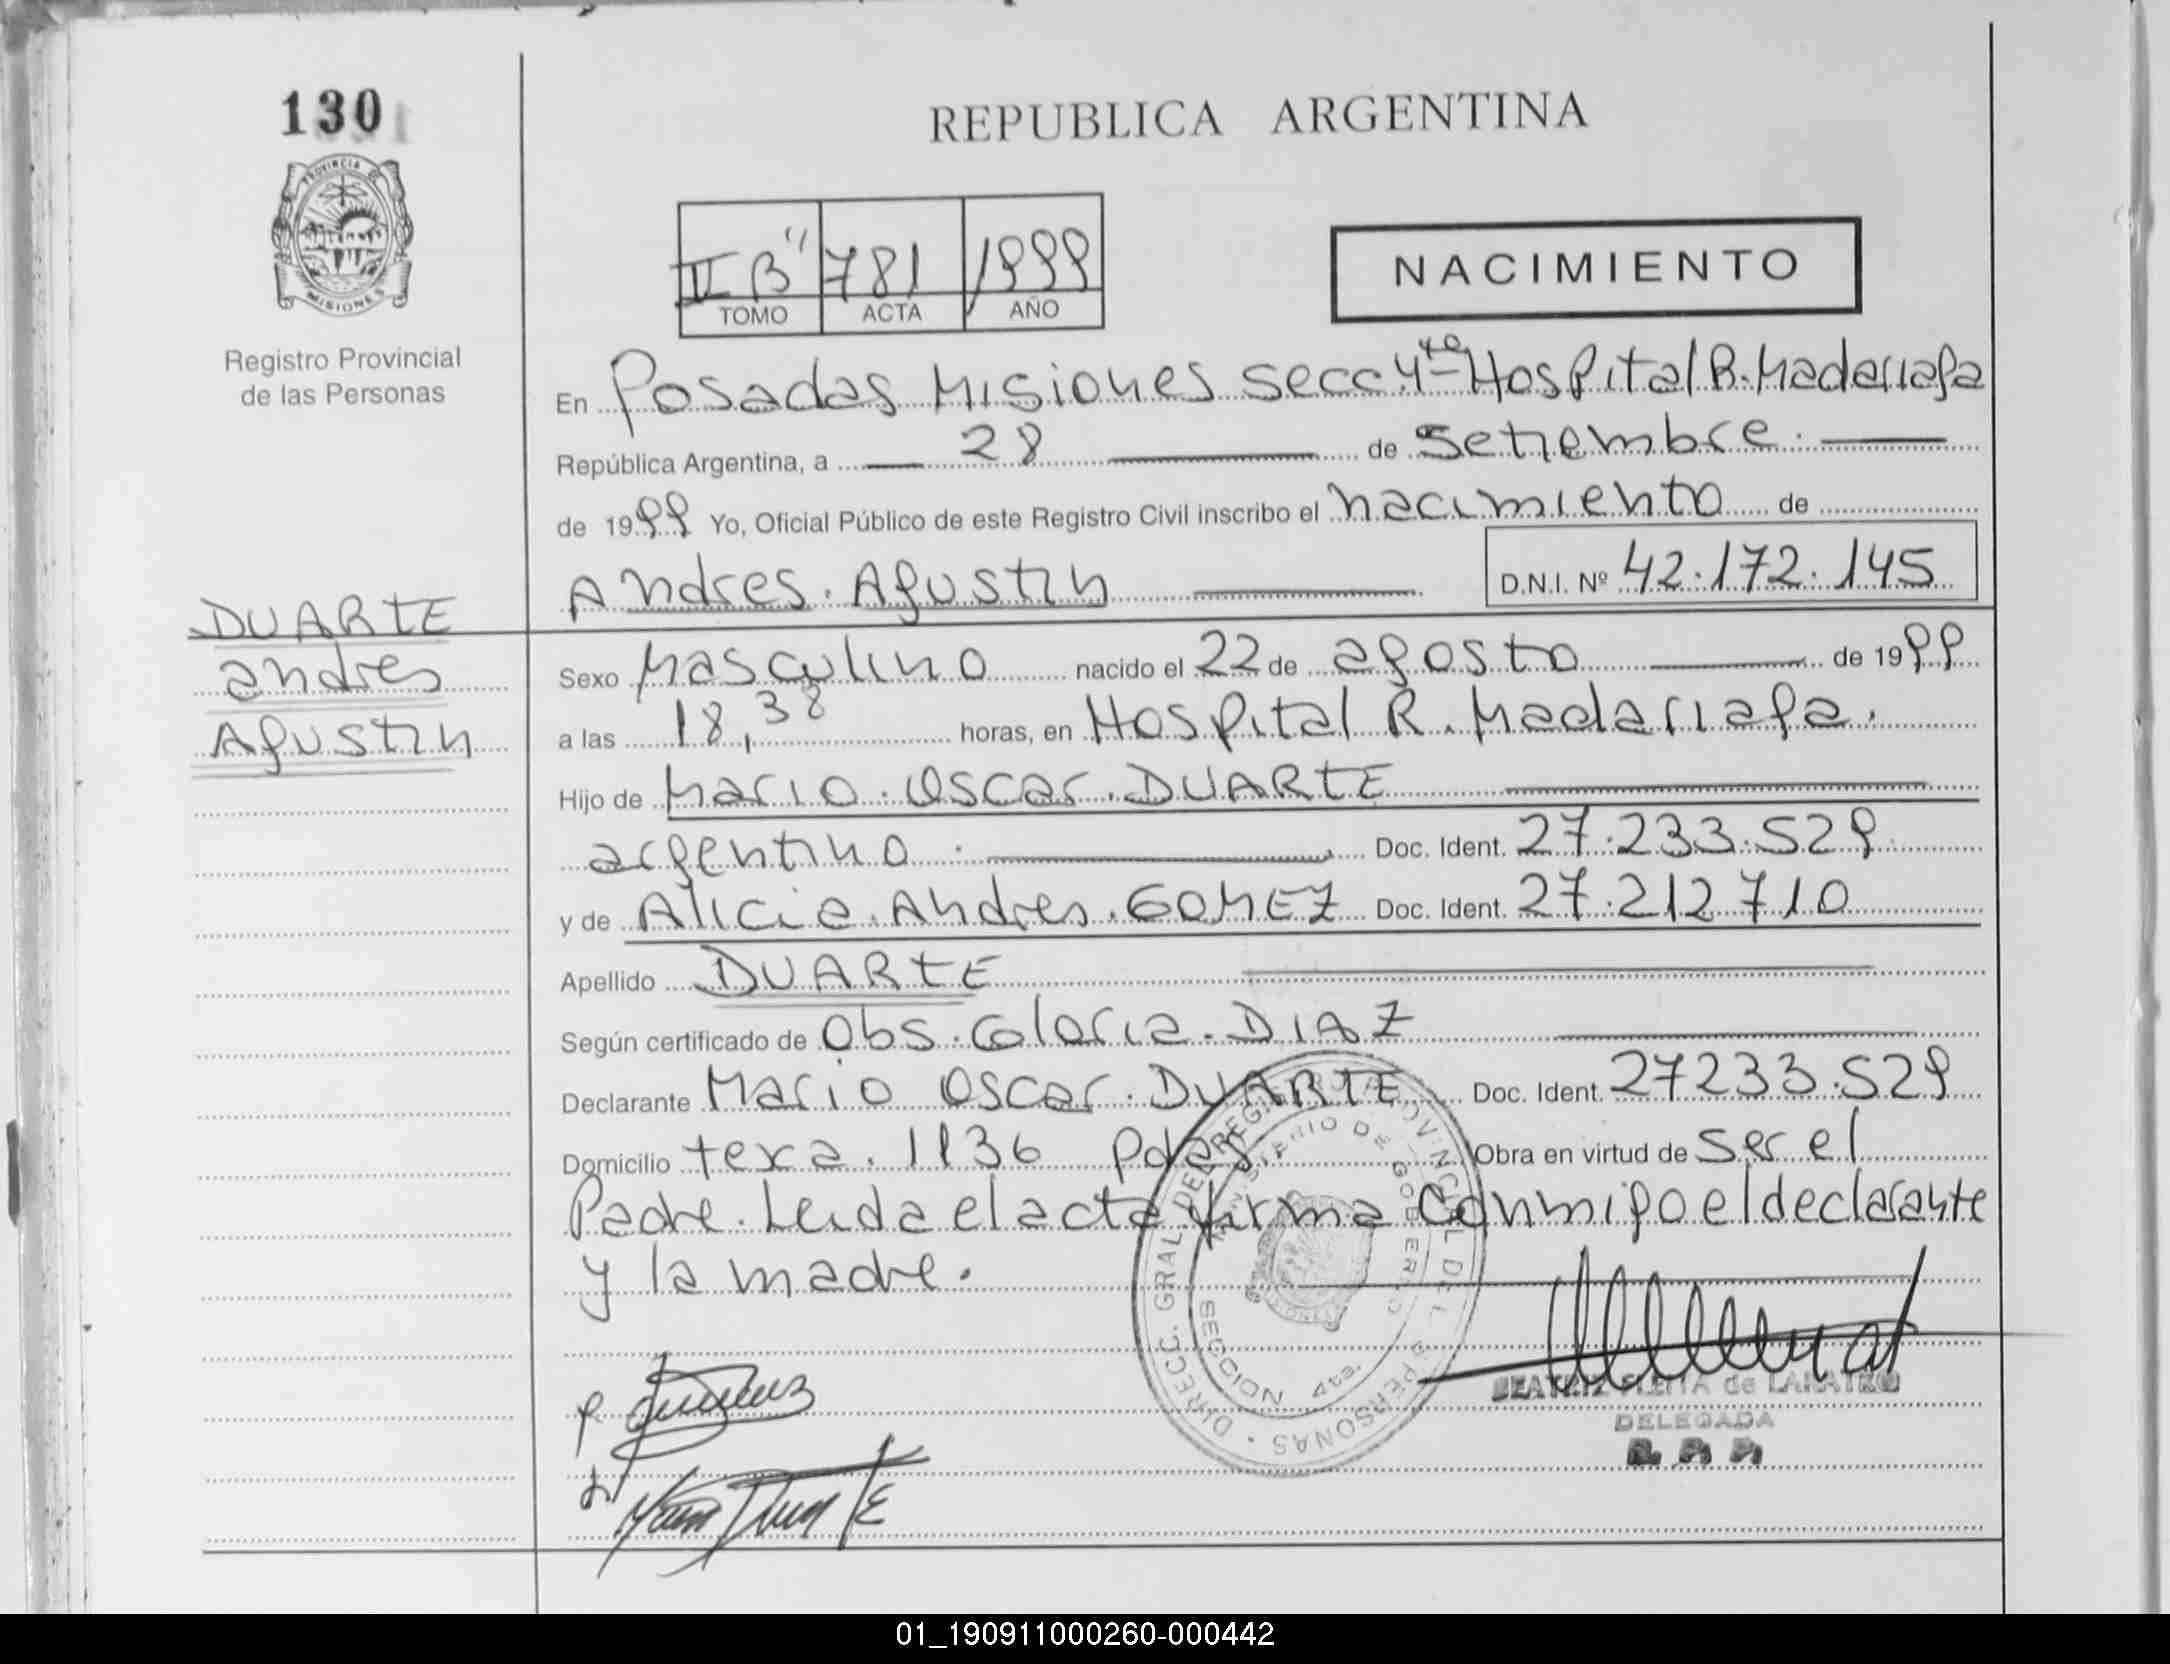 130
PROVINCIA DE
MISIONES
Registro Provincial
de las Personas
REPUBLICA ARGENTINA
II B" 781 1999
TOMO ACTA AÑO
NACIMIENTO
En Posadas Misiones secc. 4ta Hospital R. Madariaga
República Argentina, a 28 de Setiembre.
de 1999 Yo, Oficial Público de este Registro Civil inscribo el nacimiento de
Andres. Agustin D.N.I. Nº 42.172.145
DUARTE
andres
Agustin
Sexo Masculino nacido el 22 de agosto de 1999
a las 18,38 horas, en Hospital R. Madariaga.
Hijo de Mario. Oscar. DUARTE
argentino. Doc. Ident. 27.233.529
y de Alicia. Andres. GOMEZ Doc. Ident. 27.212710
Apellido DUARTE
Según certificado de Obs. Gloria. DIAZ
Declarante Mario Oscar. DUARTE Doc. Ident. 27233.529
Domicilio texa. 1136 Pdas. Obra en virtud de Ser el
Padre. Leida el acta firma Conmigo el declarante
y la madre.
DIRECC. GRAL. DEL REGISTRO PROVINCIAL DE PERSONAS
MINISTERIO DE GOBIERNO
SECCION 4ta.
BEATRIZ FLEITA de
DELEGADA
R. P. P.
01_190911000260-000442